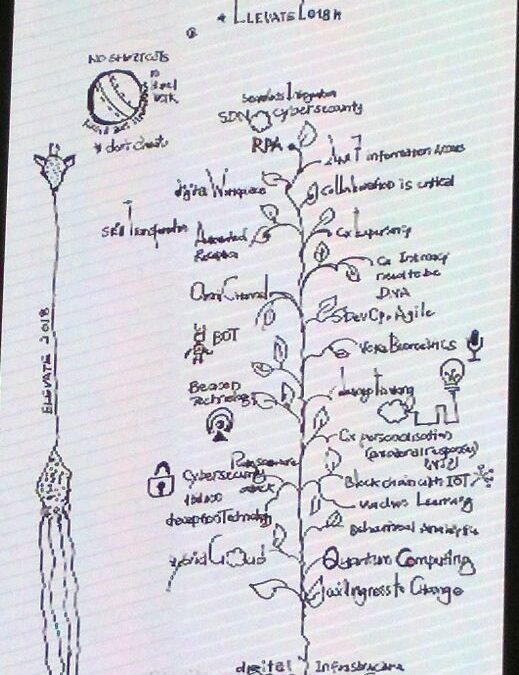 * ELEVATE 2018
NO SHORTCUTS
to hard
work
* don't cheat
Seamless Integration
SDN Cybersecurity
RPA
24x7 information Access
digital Workspace
Collaboration is critical
Skill Transformation
Automated
Reception
Cx Leadership
Cx Intimacy
need to be
DNA
Omni Channel
DevOps Agile
ELEVATE 2018
BOT
Voice Biometrics
Beacon
Technology
Design Thinking
Cx personalisation
Ransomware
Cybersecurity
attack
deception Technology
Blockchain with IOT
Machine Learning
Behavioural Analytics
Hybrid Cloud
Quantum Computing
Willingness to Change
digital Infrastructure